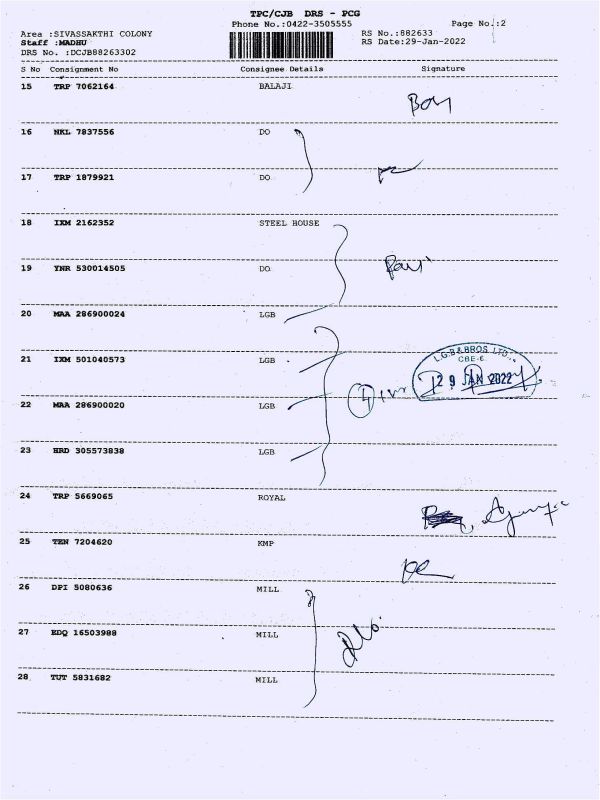 TPC/CJB DRS - PCG
Phone No.:0422-3505555 Page No.:2
Area :SIVASSAKTHI COLONY RS No.:882633
Staff :MADHU RS Date:29-Jan-2022
DRS No. :DCJB88263302
S No Consignment No Consignee Details Signature
15 TRP 7062164 BALAJI
16 NKL 7837556 DO
17 TRP 1879921 DO
18 IXM 2162352 STEEL HOUSE
19 YNR 530014505 DO
Ravi
20 MAA 286900024 LGB
L.G.B & BROS LTD.,
CBE-6.
21 IXM 501040573 LGB
29 JAN 2022
4
22 MAA 286900020 LGB
23 HRD 305573838 LGB
24 TRP 5669065 ROYAL
25 TEN 7204620 KMP
26 DPI 5080636 MILL
27 EDQ 16503988 MILL
28 TUT 5831682 MILL